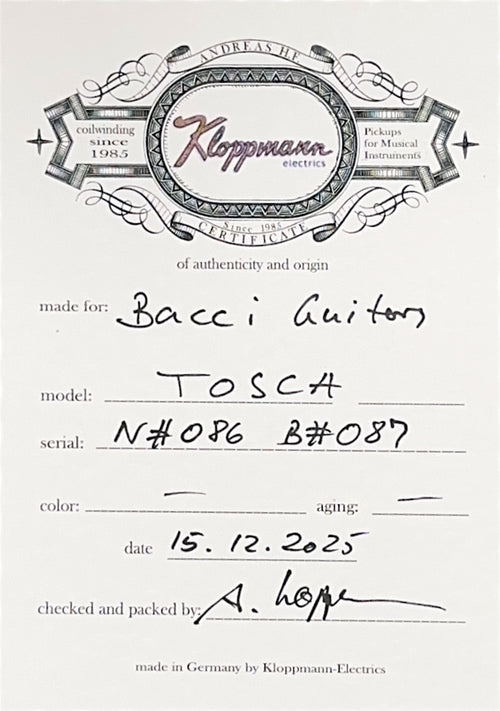 ANDREAS HE
coilwinding
since
1985
Kloppmann
electrics
Pickups
for Musical
Instruments
Since 1985
CERTIFICATE
of authenticity and origin
made for: Bacci Guitars
model: TOSCA
serial: N#086 B#087
color: — aging: —
date 15.12.2025
checked and packed by: A.
made in Germany by Kloppmann-Electrics